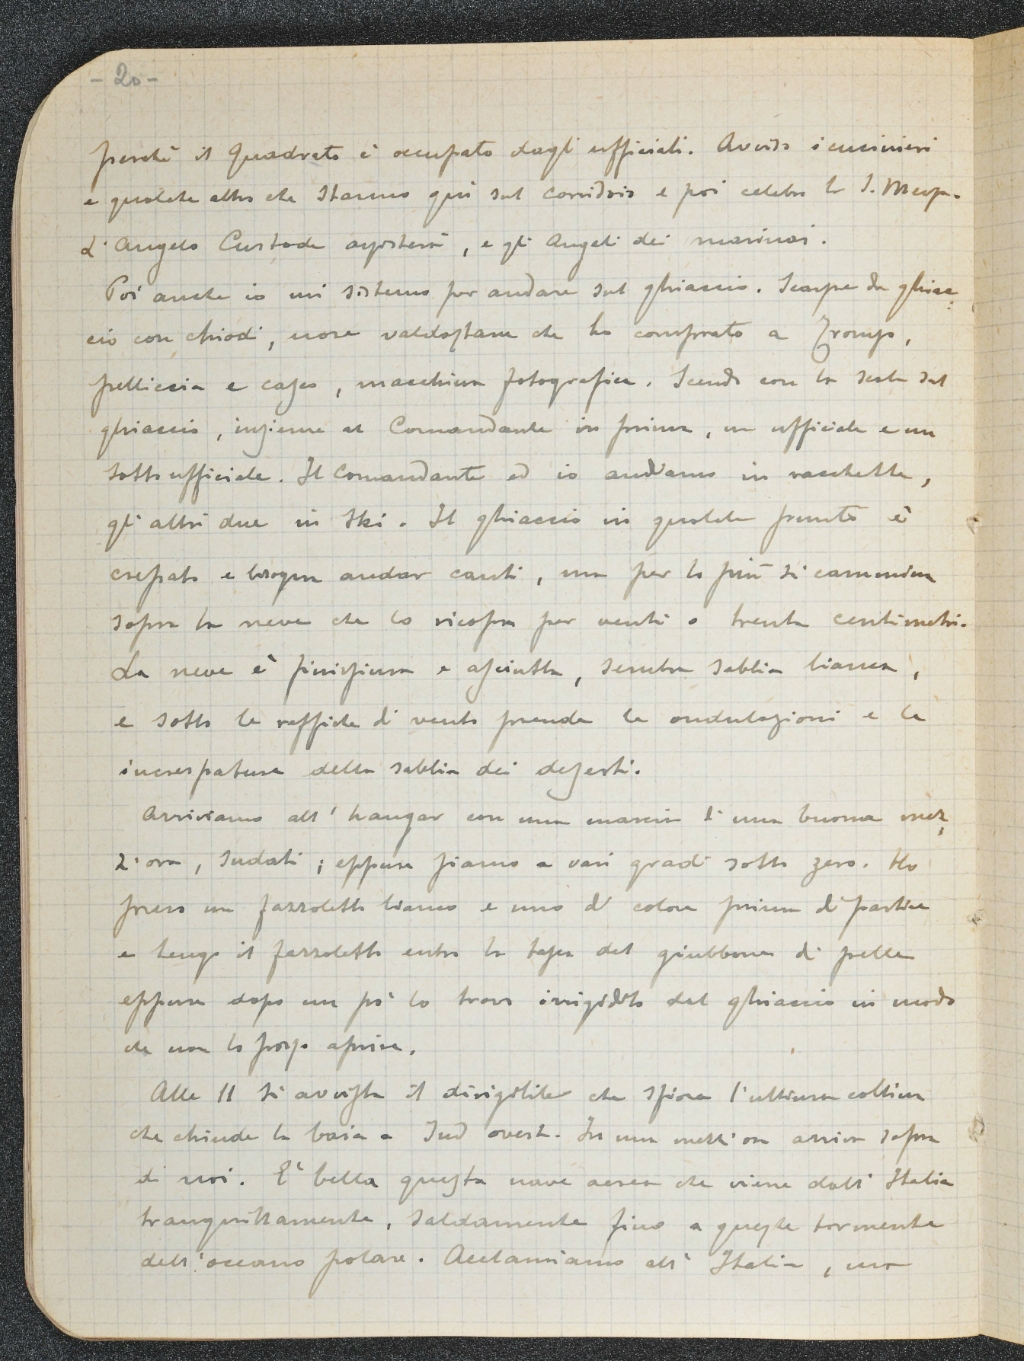 - 20 -
perchè il Quadrato è occupato dagli ufficiali. Avviso i cucinieri
e qualche altro che stanno qui sul corridoio e poi celebro la S. Messa.
L'Angelo Custode assisterà, e gli Angeli dei marinai.
Poi anche io mi sistemo per andare sul ghiaccio. Scarpe da ghiac-
cio con chiodi, uose valdostane che ho comprato a Tromsö,
pelliccia e casco, macchina fotografica. Scendo con la scala sul
ghiaccio, insieme al Comandante in prima, un ufficiale e un
sottufficiale. Il Comandante ed io andiamo in racchette,
gli altri due in ski. Il ghiaccio in qualche punto è
crepato e bisogna andar cauti, ma per lo più si cammina
sopra la neve che lo ricopre per venti o trenta centimetri.
La neve è finissima e asciutta, sembra sabbia bianca,
e sotto le raffiche di vento prende le ondulazioni e le
increspature della sabbia dei deserti.
Arriviamo all'hangar con una marcia d'una buona mez-
z'ora, sudati; eppure siamo a vari gradi sotto zero. Ho
preso un fazzoletto bianco e uno di colore prima di partire
e tengo il fazzoletto entro la tasca del giubbone di pelle
eppure dopo un pò lo trovo irrigidito dal ghiaccio in modo
che non lo posso aprire.
Alle 11 si avvista il dirigibile che sfiora l'ultima collina
che chiude la baia a Sud ovest. In una mezz'ora arriva sopra
di noi. E' bella questa nave aerea che viene dall'Italia
tranquillamente, saldamente fino a queste tormente
dell'oceano polare. Acclamiamo all'Italia, ma